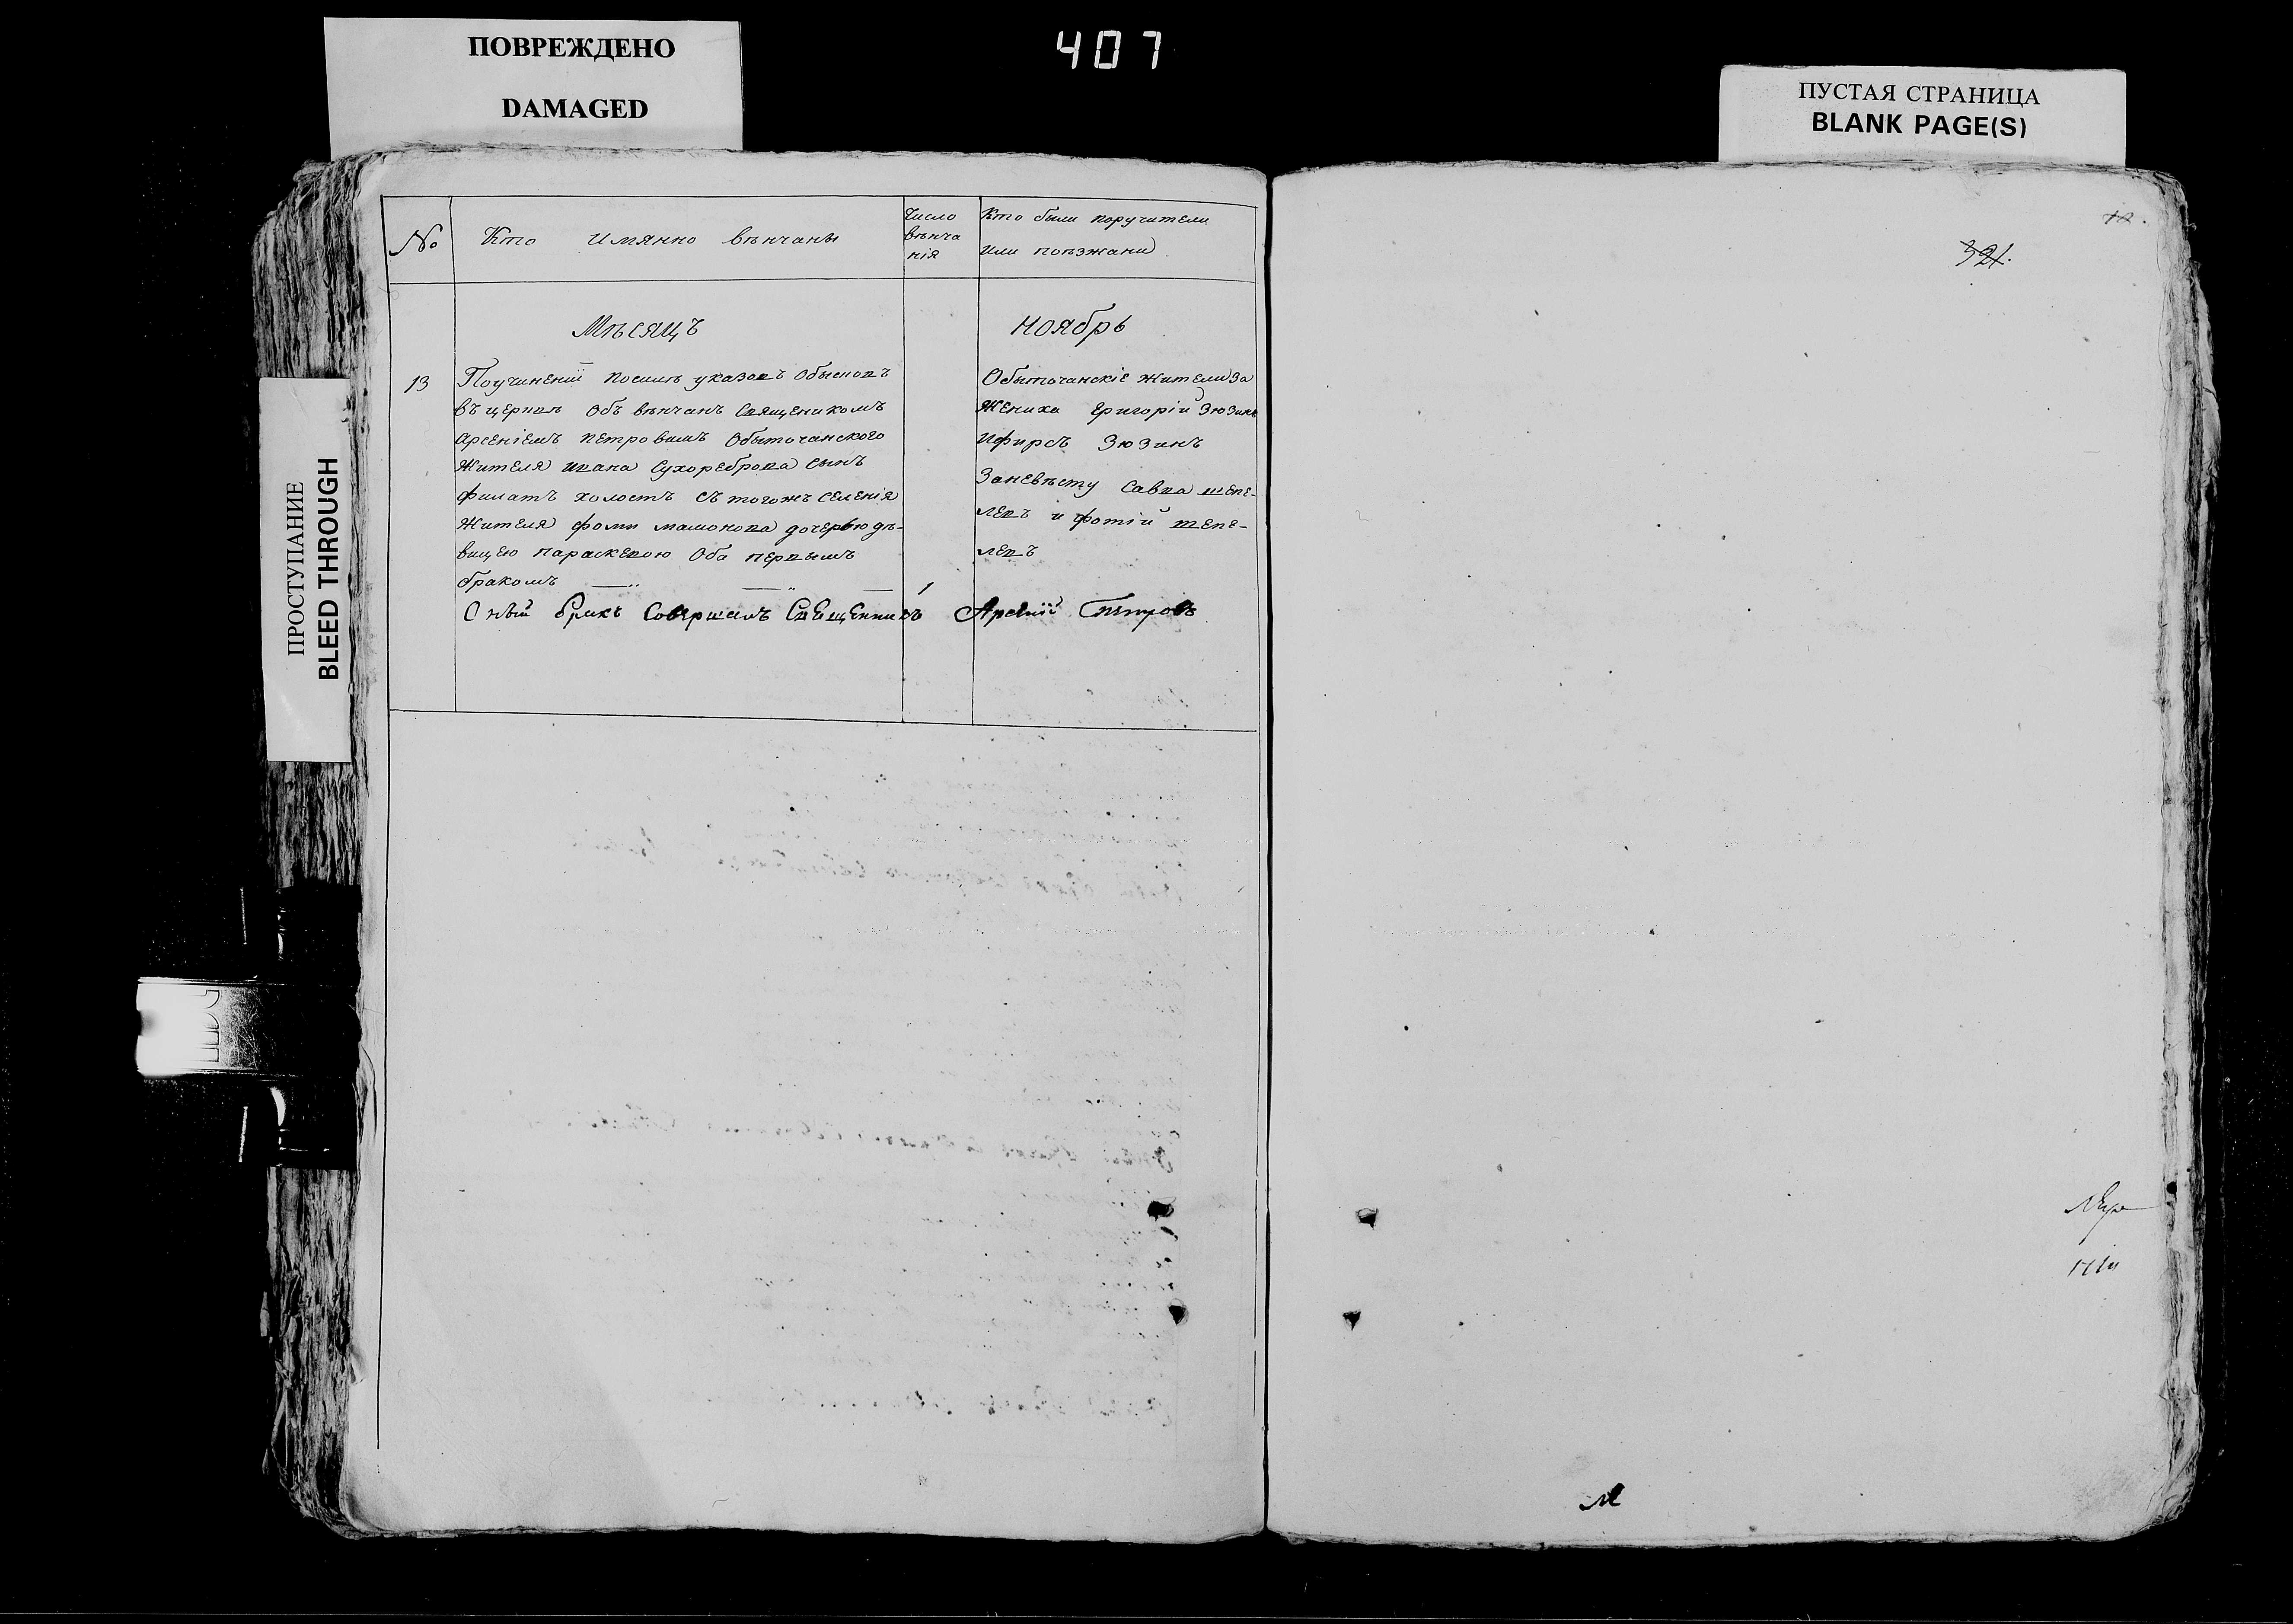 ПОВРЕЖДЕНО
DAMAGED
407
ПУСТАЯ СТРАНИЦА
BLANK PAGE(S)
ПРОСТУПАНИЕ
BLEED THROUGH
№ Кто имянно вѣнчаны
Число
вѣнча
нія
Кто были поручители
или поѣзжани
Мѣсяцъ Ноябрь
13
Поучиненіи посилѣ указовъ обысковъ
въ церквѣ обвѣнчанъ Священикомъ
Арсеніемъ Петровымъ Обыточанского
жителя ивана Сухореброва сынъ
филатъ холостъ съ тогожъ селенія
жителя фомы мамонова дочерью дѣ-
вицею параскевою оба первымъ
бракомъ
1
Обыточанскіе жители за
жениха григорій Зюзинъ
ифирсъ Зюзинъ
Заневѣсту Савва шепе-
левъ и фотій шепе-
левъ
Оный бракъ Совершалъ Священникъ Арсеній Петровъ
321.
М